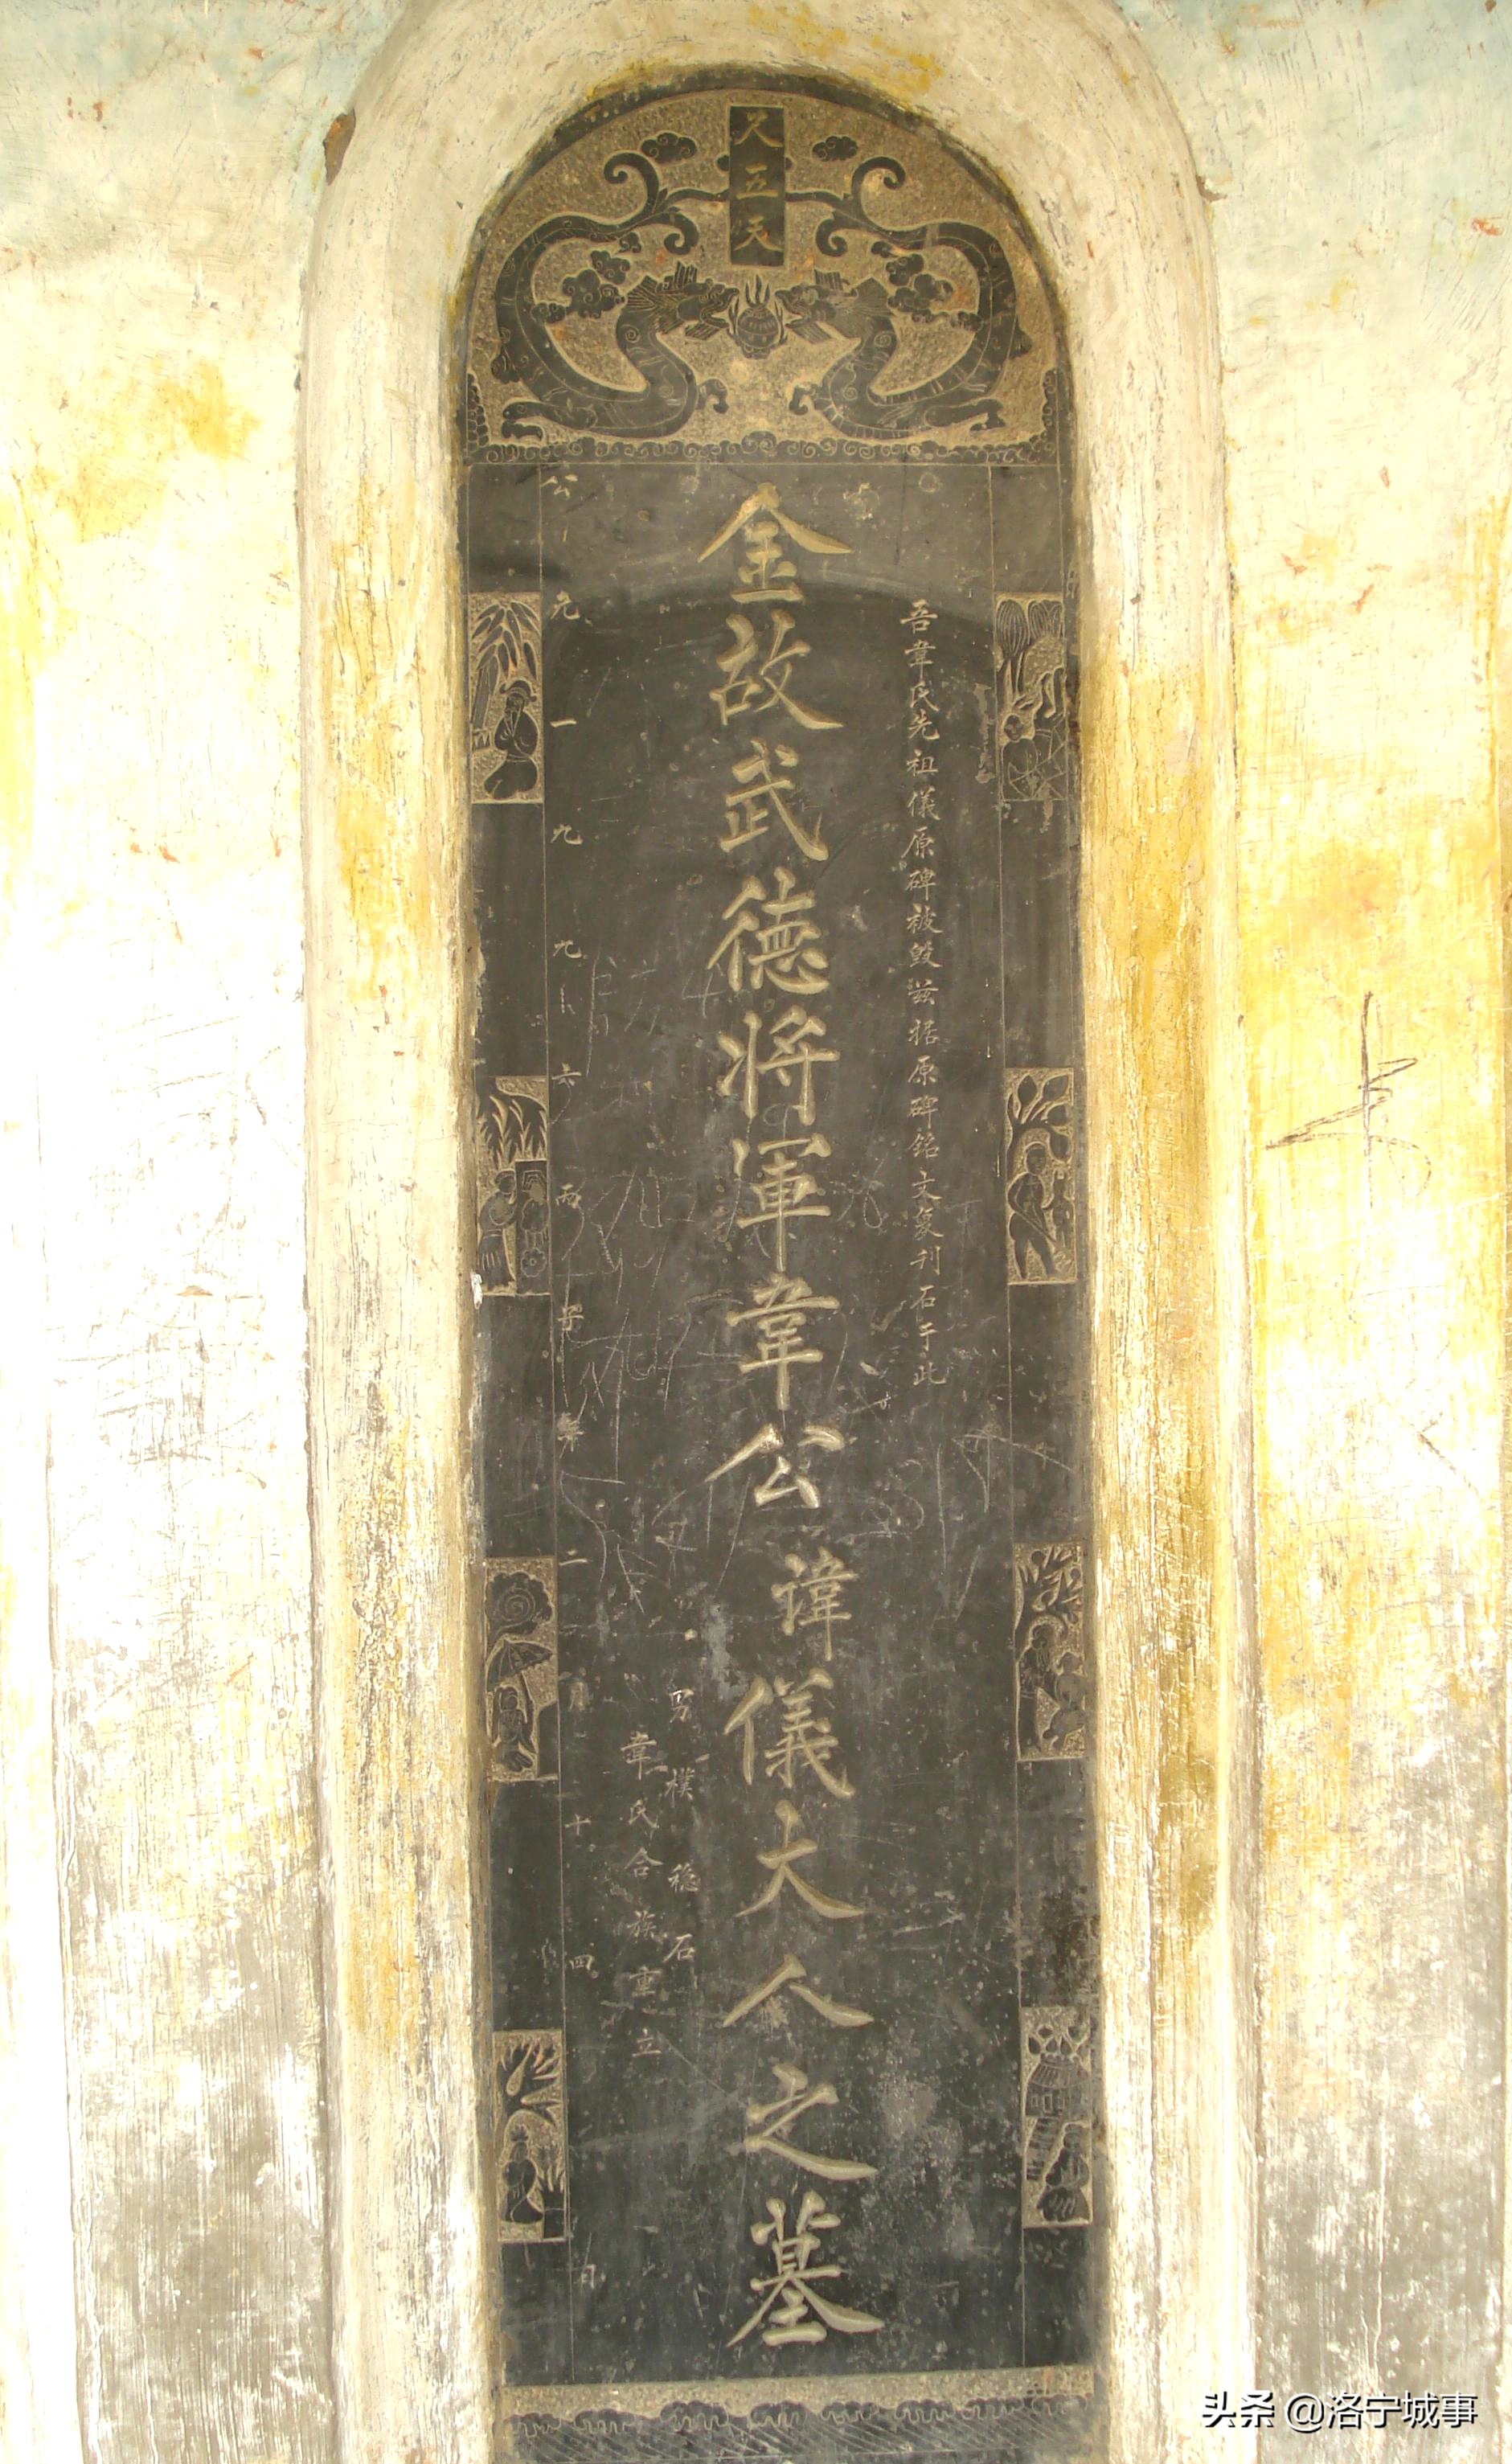 尺五天
吾韋氏先祖儀原碑被毀兹据原碑銘文复刋石于此
金故武德将軍韋公諱儀大人之墓
男樸稳石
韋氏合族重立
公元一九九六丙子年二月十四日
头条 @洛宁城事